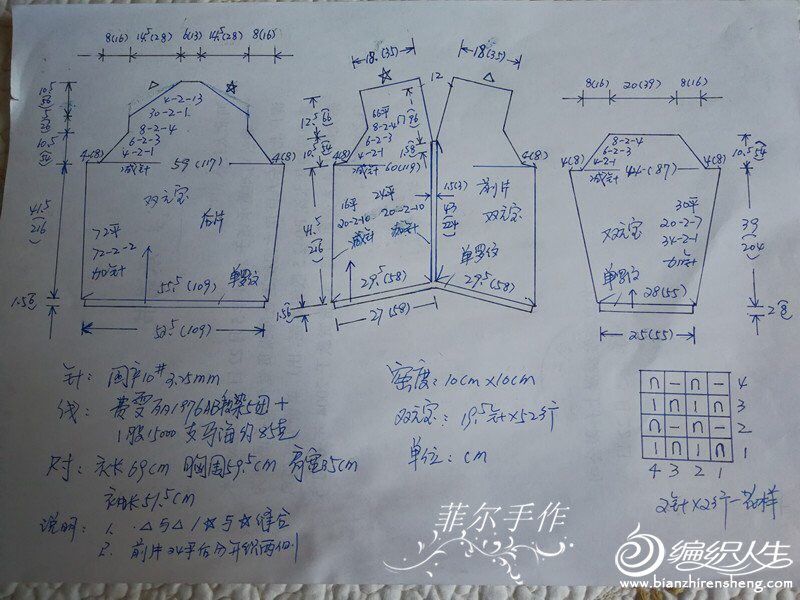 8(16) 14.5(28) 6(13) 14.5(28) 8(16)
18.(35)
12
18(35)
8(16) 20(39) 8(16)
△
☆
☆
△
4-2-13
30-2-1
8-2-4
6-2-3
4-2-1
减针
4(8)
59(117)
4(8)
双元宝
后片
72平
72-2-2
加针
55.5(109)
单罗纹
52.5(109)
10.5
41.5
(216)
1.5
12.5(66)
10.5(54)
41.5
(216)
66平
8-2-4
6-2-3
4-2-1
减针
60(119)
4(8)
4(8)
16平
24平
20-2-10
20-2-10
减针
加针
1.5(3)
43
(224)
前片
双元宝
单罗纹
29.5(58)
29.5(58)
27(58)
8-2-4
6-2-3
4-2-1
减针
4(8)
44(87)
4(8)
双元宝
30平
20-2-7
34-2-1
加针
单罗纹
28(55)
25(55)
10.5(54)
39
(204)
针: 国产10# 3.25mm
密度: 10cm×10cm
双元宝: 19.5针×52行
单位: cm
尺寸: 衣长69cm 胸围59.5cm 肩宽35cm
袖长51.5cm
说明: 1. △与△ / ☆与☆缝合
2. 前片24平后分开织两侧
∩ — ∩ — 4
| ∩ | ∩ 3
∩ — ∩ — 2
| ∩ | ∩ 1
4 3 2 1
2针×2行一花样
菲尔手作
编织人生
www.bianzhirensheng.com